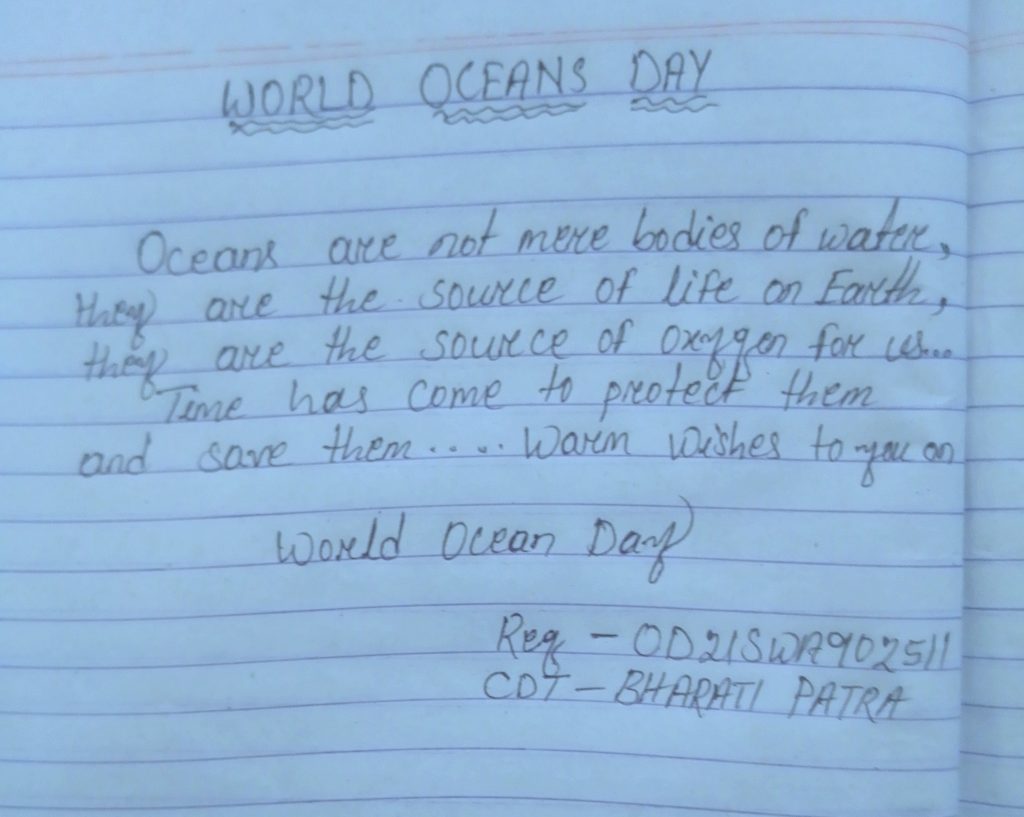 WORLD OCEANS DAY
Oceans are not mere bodies of water,
they are the source of life on Earth,
they are the source of oxygen for us...
Time has come to protect them
and save them..... Warm Wishes to you on
World Ocean Day
Reg - OD21SWA902511
CDT - BHARATI PATRA